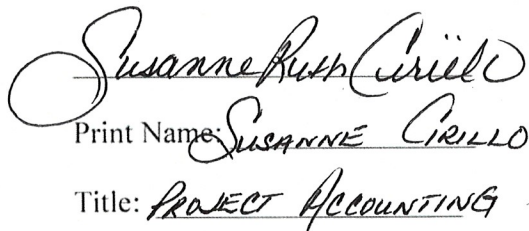 Susanne Ruth Cirillo
Print Name: SUSANNE CIRILLO
Title: PROJECT ACCOUNTING